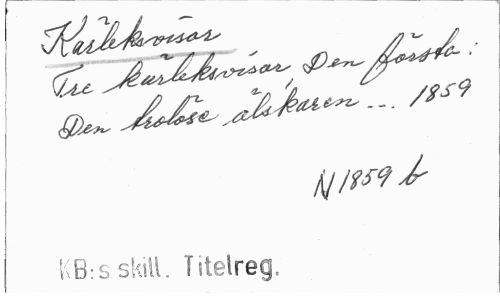 Kärleksvisor
Tre kärleksvisor, Den första:
Den trolöse älskaren ... 1859
N 1859 b
KB:s skill. Titelreg.